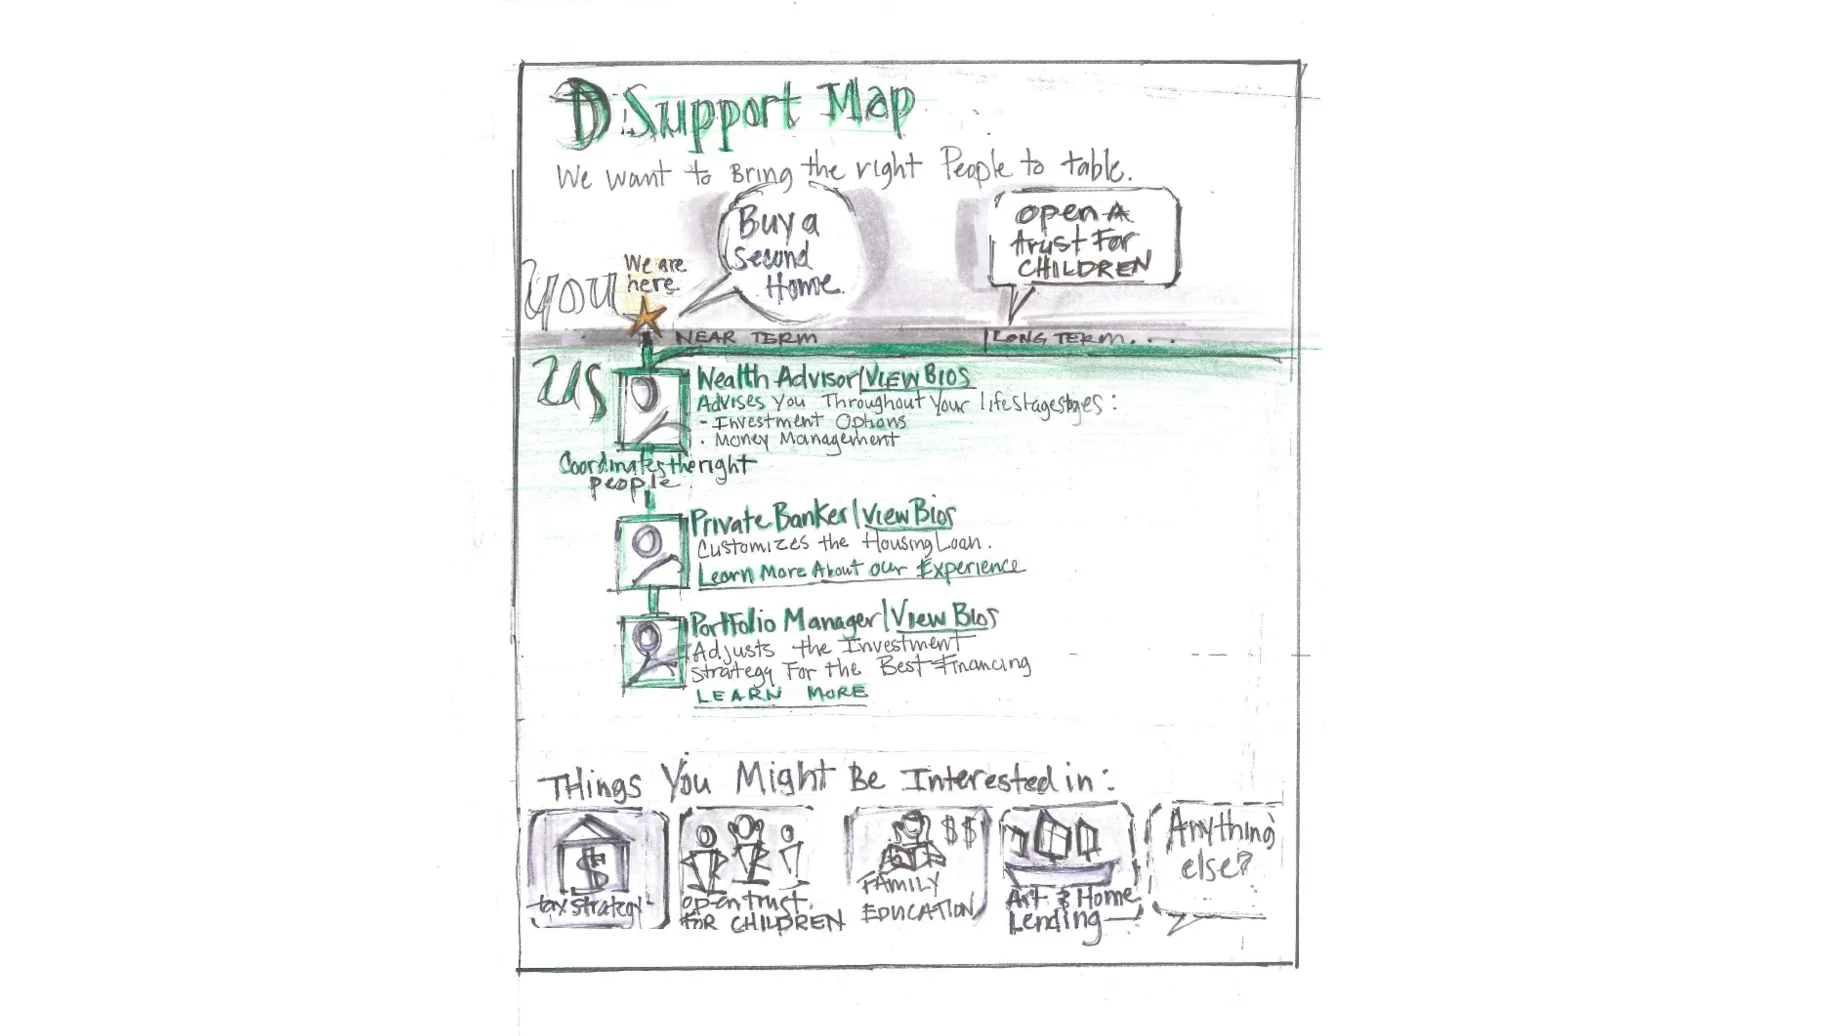 D Support Map
We want to Bring the right People to table.
Buy a
Second
Home.
Open A
trust For
CHILDREN
We are
here
You
NEAR TERM
LONG TERM...
US
Wealth Advisor | VIEW BIOS
Advises You Throughout Your life stages:
- Investment Options
. Money Management
Coordinates the right
people.
Private Banker | View Bios
Customizes the Housing Loan.
Learn More About our Experience
Portfolio Manager | View Bios
Adjusts the Investment
Strategy For the Best Financing
LEARN MORE
THings You Might Be Interested in:
$
tax strategy
open trust
FOR CHILDREN
$$
FAMILY
EDUCATION
Art & Home
Lending
Anything
else?